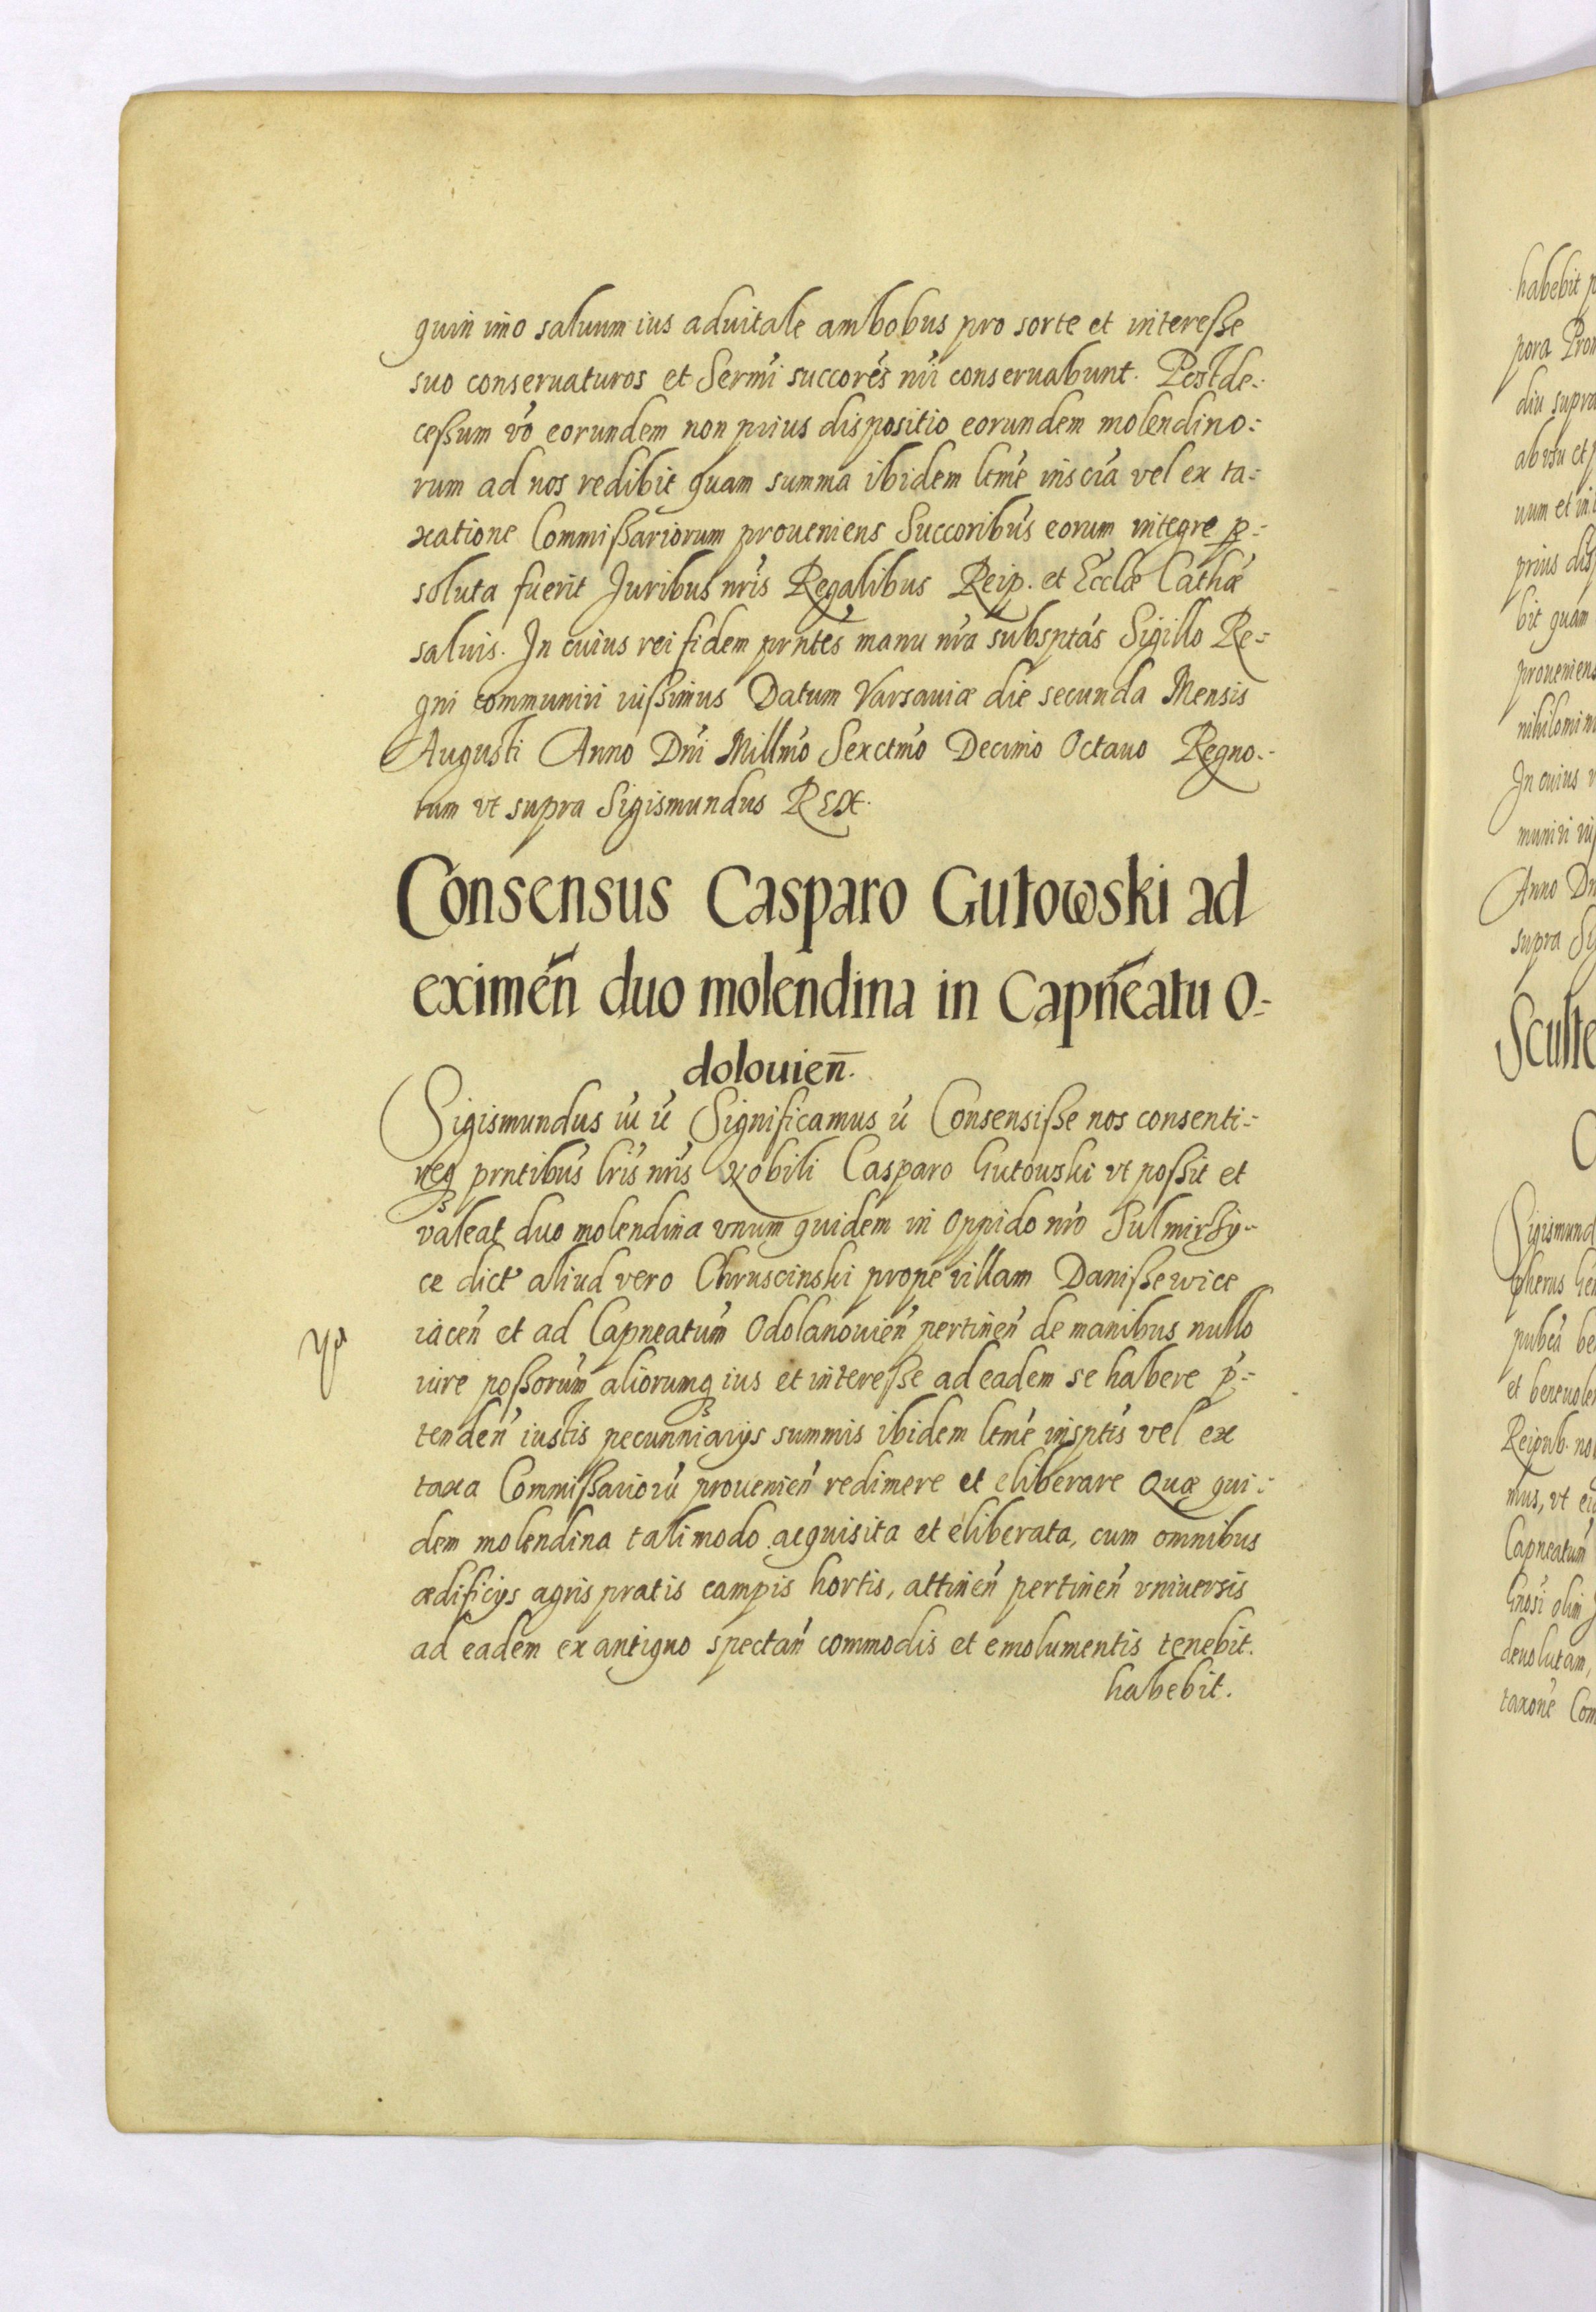 quin imo saluum ius aduitale ambobus pro sorte et interesse
suo conseruaturos et Sermi succores nri conseruabunt. Post de-
cessum vo eorundem non prius dispositio eorundem molendino-
rum ad nos redibit quam summa ibidem ltme inscia vel ex ta-
xatione Commissariorum proueniens Succoribus eorum integre p-
soluta fuerit Juribus nris Regalibus Reip. et Ecclæ Cathæ
saluis. In cuius rei fidem prntes manu nra subsptas Sigillo Re-
gni communiri iussimus Datum Varsauiæ die secunda Mensis
Augusti Anno Dni Millmo Sexctmo Decimo Octauo Regno-
rum vt supra Sigismundus Rex.
Consensus Casparo Gutowski ad
eximen duo molendina in Capneatu O-
dolouien.
Sigismundus iu u Significamus u Consensisse nos consenti-
req prntibus lris nris Nobili Casparo Gutouski vt possit et
valeat duo molendina vnum quidem in oppido nro Sulmirszy-
ce dict aliud vero Chruscinski prope villam Daniszewice
iacen et ad Capneatum Odolanouien pertinen de manibus nullo
iure possorum aliorumq ius et interesse ad eadem se habere p-
tenden iustis pecunniarijs summis ibidem ltme insptis vel ex
taxa Commissarioru prouenien redimere et eliberare Quæ qui-
dem molendina tali modo acquisita et eliberata, cum omnibus
ædificijs agris pratis campis hortis, attinen pertinen vniuersis
ad eadem ex antiquo spectan commodis et emolumentis tenebit.
habebit.
habebit
pora
diu supra
ab vsu et
uum et in
prius dis
bit quam
proueniens
nihilomin
In cuius
muniri
Anno Dn
supra Si
Sculte
Sigismund
pherus
et beneuolen
Reipub. no
mus, vt
Capneatum
Gnosi olim
deuolutam,
taxone Com